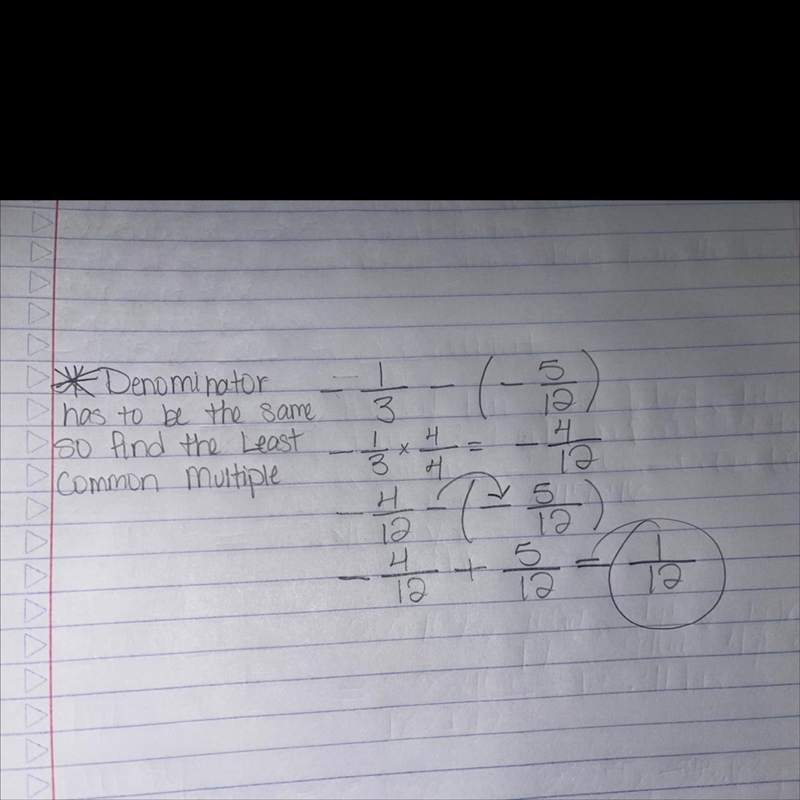 * Denominator
has to be the same
so find the Least
Common Multiple
- 1/3 - (- 5/12)
- 1/3 × 4/4 = - 4/12
- 4/12 - (- 5/12)
- 4/12 + 5/12 = 1/12